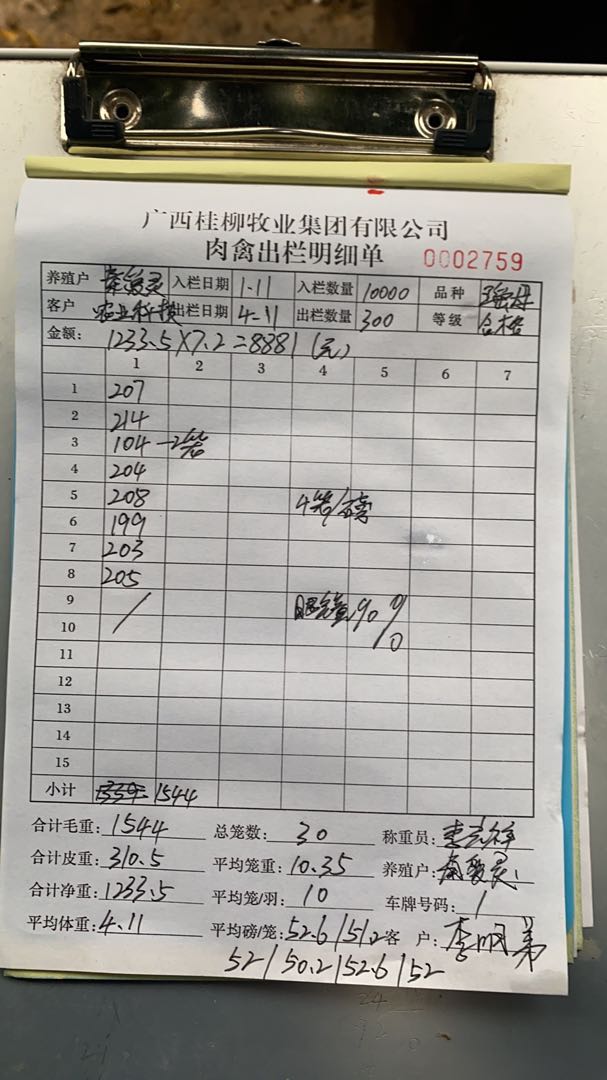 广西桂柳牧业集团有限公司
肉禽出栏明细单 0002759
养殖户 入栏日期 1-11 入栏数量 10000 品种
客户 农业科技 出栏日期 4-11 出栏数量 300 等级 合格
金额: 1233.5×7.2=8881(元)
1 2 3 4 5 6 7
1 207
2 214
3 104 -2笼
4 204
5 208 4笼/磅
6 199
7 203
8 205
9 / 90%
10
11
12
13
14
15
小计 1544
合计毛重: 1544 总笼数: 30 称重员:
合计皮重: 310.5 平均笼重: 10.35 养殖户:
合计净重: 1233.5 平均笼/羽: 10 车牌号码: /
平均体重: 4.11 平均磅/笼: 52.6/51.2 客 户: 李
52/50.2/52.6/52